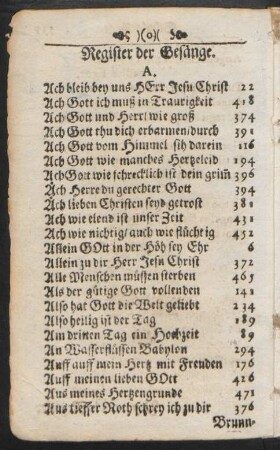 )(o)(
Register der Gesänge.
A.
Ach bleib bey uns HErr Jesu Christ 22
Ach Gott ich muß in Traurigkeit 418
Ach Gott und Herr/ wie groß 374
Ach Gott thu dich erbarmen/durch 391
Ach Gott vom Himmel sih darein 116
Ach Gott wie manches Hertzeleid 194
Ach Gott wie schrecklich ist dein grim̃ 396
Ach Herre du gerechter Gott 394
Ach lieben Christen seyd getrost 381
Ach wie elend ist unser Zeit 431
Ach wie nichtig/ auch wie flüchtig 452
Allein GOtt in der Höh sey Ehr 6
Allein zu dir Herr Jesu Christ 372
Alle Menschen müssen sterben 465
Als der gütige Gott vollenden 141
Also hat Gott die Welt geliebt 234
Also heilig ist der Tag 189
Am dritten Tag ein Hochzeit 89
An Wasserflüssen Babylon 294
Auff auff mein Hertz mit Freuden 176
Auff meinen lieben GOtt 426
Aus meines Hertzengrunde 471
Aus tieffer Noth schrey ich zu dir 376
Brunn-